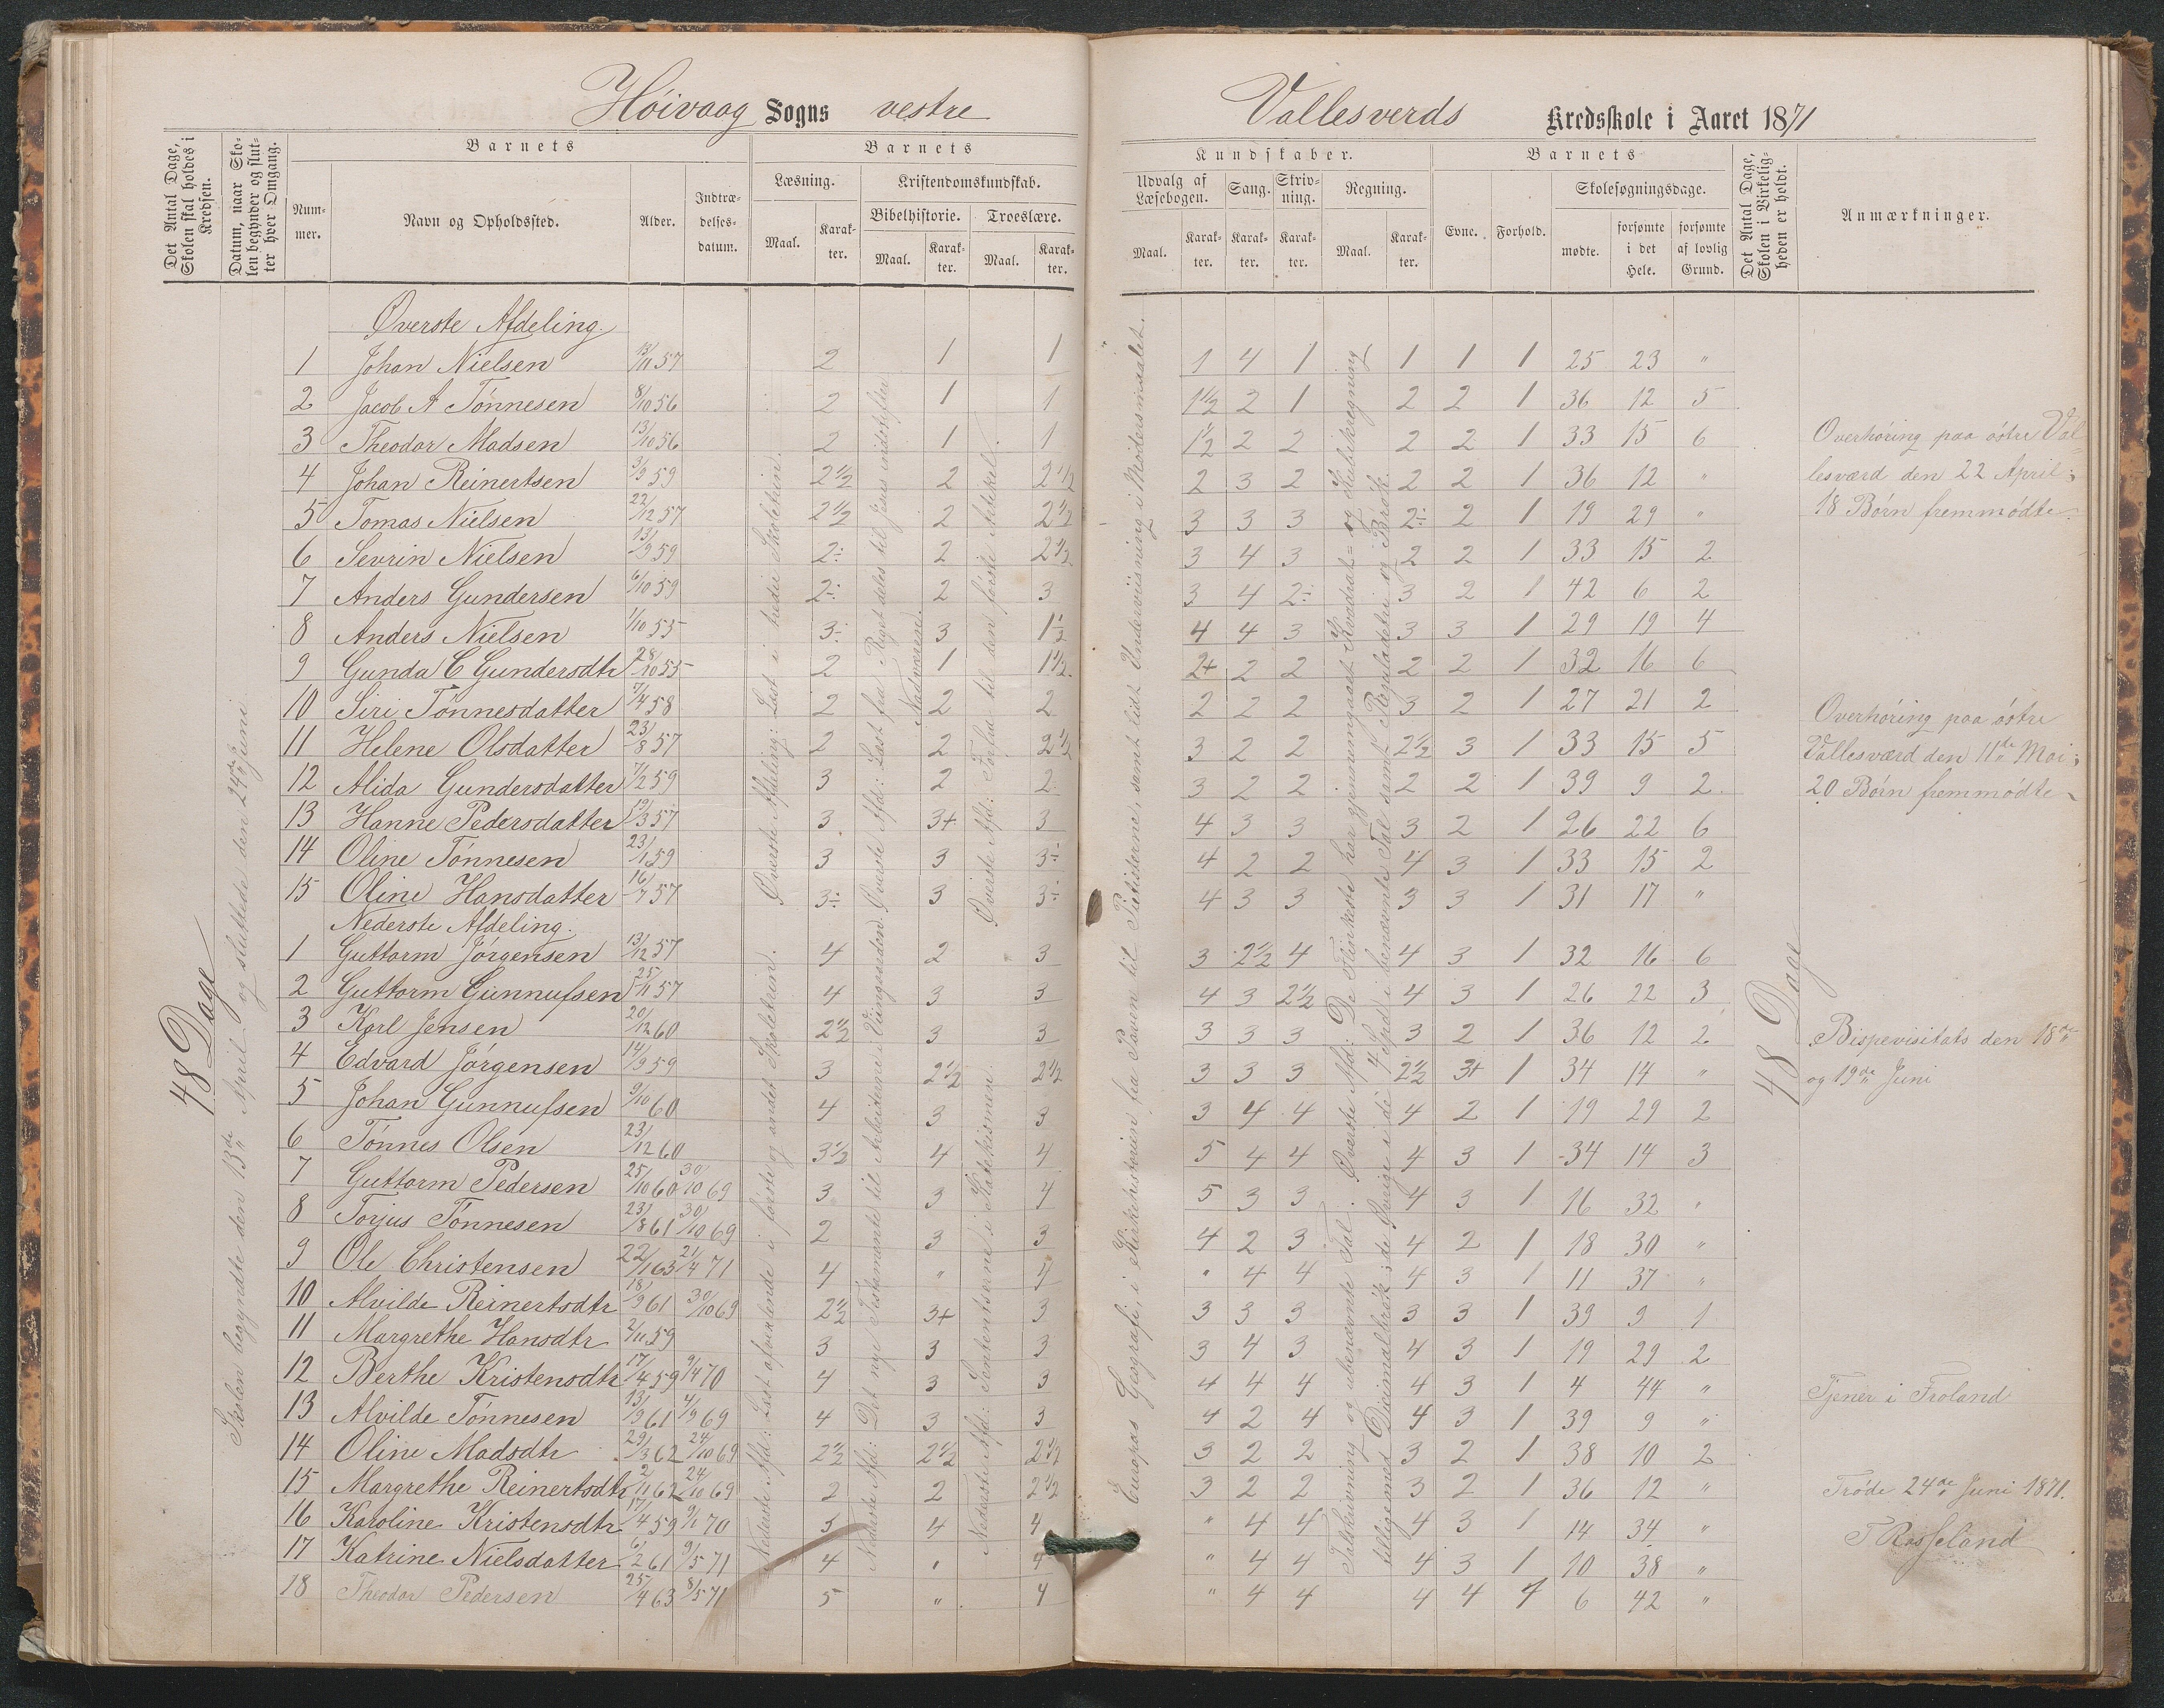 Høivaag Sogns vestre
Vallesverds Kredsskole i Aaret 1871
Det Antal Dage, Skolen skal holdes i Kredsen.
Datum, naar Skolen begynder og slutter hver Omgang.
Barnets
Nummer.
Navn og Opholdssted.
Alder.
Indtrædelsesdatum.
Barnets
Læsning.
Maal.
Karakter.
Kristendomskundskab.
Bibelhistorie.
Maal.
Karakter.
Troeslære.
Maal.
Karakter.
Kundskaber.
Udvalg af Læsebogen.
Maal.
Karakter.
Sang.
Karakter.
Skrivning.
Karakter.
Regning.
Maal.
Karakter.
Barnets
Evne.
Forhold.
Skolesøgningsdage.
mødte.
forsømte i det Hele.
forsømte af lovlig Grund.
Det Antal Dage, Skolen i Virkeligheden er holdt.
Anmærkninger.
48 Dage
Skolen begyndte den 13de April og sluttede den 24de Juni
Øverste Afdeling.
1 Johan Nielsen 13/11 57 2 1 1 1 4 1 1 1 1 25 23 "
2 Jacob A Tønnesen 8/10 56 2 1 1 1 1/2 2 1 2 2 1 36 12 5
3 Theodor Madsen 13/10 56 2 1 1 1 1/2 2 2 2 2 1 33 15 6
4 Johan Reinertsen 3/9 59 2 1/2 2 2 1/2 2 3 2 2 2 1 36 12 "
5 Tomas Nielsen 22/12 57 2 1/2 2 2 1/2 3 3 3 2÷ 2 1 19 29 "
6 Sevrin Nielsen 13/9 59 2÷ 2 2 1/2 3 4 3 2 2 1 33 15 2
7 Anders Gundersen 6/10 59 2÷ 2 3 3 4 2÷ 3 2 1 42 6 2
8 Anders Nielsen 1/10 55 3÷ 3 1 1/2 4 4 3 3 3 1 29 19 4
9 Gunda C Gundersdtr 28/10 55 2 1 1 1/2 2+ 2 2 2 2 1 32 16 6
10 Siri Tønnesdatter 7/4 58 2 2 2 2 2 2 3 2 1 27 21 2
11 Helene Olsdatter 23/8 57 2 2 2 1/2 3 2 2 2 1/2 3 1 33 15 5
12 Alida Gundersdatter 7/2 59 3 2 2 3 2 2 2 2 1 39 9 2
13 Hanne Pedersdatter 19/3 57 3 3+ 3 4 3 3 3 2 1 26 22 6
14 Oline Tønnesen 23/1 59 3 3 3÷ 4 2 2 4 3 1 33 15 2
15 Oline Hansdatter 16/7 57 3÷ 3 3÷ 4 3 3 3 3 1 31 17 "
Nederste Afdeling.
1 Guttorm Jørgensen 13/12 57 4 2 3 3 2 1/2 4 4 3 1 32 16 6
2 Guttorm Gunnufsen 25/11 57 4 3 3 4 3 2 1/2 4 3 1 26 22 3
3 Karl Jensen 20/12 60 2 1/2 3 3 3 3 3 3 2 1 36 12 2
4 Edvard Jørgensen 14/9 59 3 2 1/2 2 1/2 3 3 3 2 1/2 3+ 1 34 14 "
5 Johan Gunnufsen 9/10 60 4 3 3 3 4 4 4 2 1 19 29 2
6 Tønnes Olsen 23/12 60 3 1/2 4 4 5 4 4 4 3 1 34 14 3
7 Guttorm Pedersen 25/10 60 30/10 69 3 3 4 5 3 3 4 3 1 16 32 "
8 Torjus Tønnesen 23/8 61 30/10 69 2 3 3 4 2 3 4 2 1 18 30 "
9 Ole Christensen 22/1 63 21/4 71 4 " 4 " 4 4 4 3 1 11 37 "
10 Alvilde Reinertsdtr 18/9 61 30/10 69 2 1/2 3+ 3 3 3 3 3 3 1 39 9 1
11 Margrethe Hansdtr 2/11 59 3 3 3 3 4 3 4 3 1 19 29 2
12 Berthe Kristensdtr 17/4 59 9/4 70 4 3 3 4 4 4 4 3 1 4 44 "
13 Alvilde Tønnesen 13/9 61 4/9 69 4 3 3 4 2 4 4 3 1 39 9 "
14 Oline Madsdtr 29/3 62 24/10 69 2 1/2 2 1/2 2 1/2 3 2 2 3 2 1 38 10 2
15 Margrethe Reinertsdtr 2/11 62 24/10 69 2 2 2 1/2 3 2 2 3 2 1 36 12 "
16 Karoline Kristensdtr 17/4 59 70 3 4 4 " 4 4 4 3 1 14 34 "
17 Katrine Nielsdatter 6/2 61 9/5 71 4 " 4 " 4 4 4 3 1 10 38 "
18 Theodor Pedersen 25/4 63 8/5 71 5 " 4 " 4 4 4 4 1 6 42 "
Øverste Afdeling: Læst i tredie Skoletrin.
Nederste Afd: Læst afvexlende i første og andet Skoletrin.
Øverste Afd: Læst fra Riget deles til Jesus indstifter Nadveren.
Nederste Afd: Det nye Testamente til Arbeiderne i Viingaarden.
Øverste Afd: Forfra til den første Artikel.
Nederste Afd: Sententserne i Katekismen.
Europas Geografi, i Kirkehistorien fra Paven til Pietisterne, samt lidt Underviisning i Modersmaalet.
Øverste Afd: De flinkeste har gjennemgaaet Kvadrat= og Kubikregning
4 Spd i benævnte Tal samt Reguladetri og Brøk.
Talskrivning og ubenævnte Tal
tilligemed Decimalbrøk; de Øvrige i de
48 Dage
Overhøring paa østre Val=
lesværd den 22 April;
18 Børn fremmødte.
Overhøring paa østre
Vallesværd den 11te Mai;
20 Børn fremmødte
Bispevisitats den 18de
og 19de Juni
Tjener i Froland
Trøde 24de Juni 1871.
T Rosseland